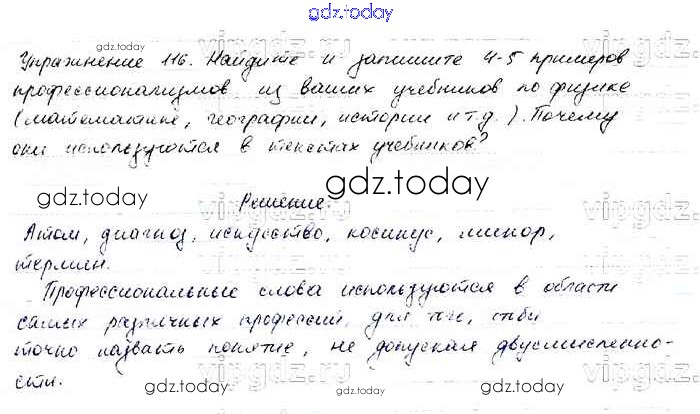 gdz.today
Упражнение 116. Найдите и запишите 4-5 примеров
профессионализмов из ваших учебников по физике
(математике, географии, истории и т.д.). Почему
они используются в текстах учебников?
Решение:
Атом, диагноз, искусство, косинус, минор,
термин.
Профессиональные слова используются в области
самых различных профессий, для того, чтобы
точно назвать понятие, не допуская двусмысленно-
сти.
gdz.today
gdz.today
gdz.today
gdz.today
gdz.today
gdz.today
vipgdz.ru
vipgdz.ru
vipgdz.ru